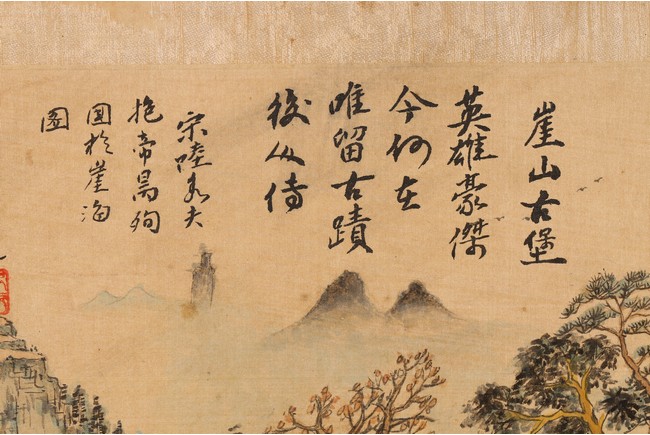 崖山古堡
英雄豪傑
今何在
唯留古蹟
後人侍
宋陸秀夫
抱帝昺殉
国於崖海
圖